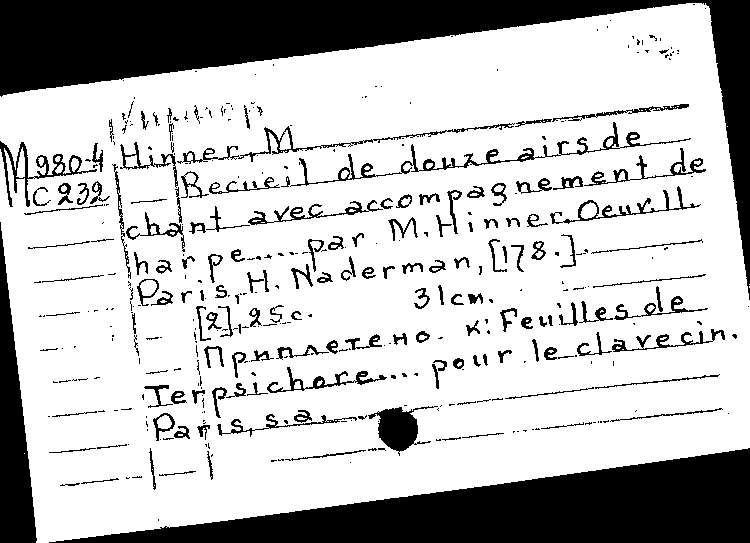 Хиннер
M980-4 Hinner, M
C232 Recueil de douze airs de
chant avec accompagnement de
harpe..... par M. Hinner. Oeuv. II.
Paris, H. Naderman, [178.].
[2], 25 с. 31 см.
Приплетено к: Feuilles de
Terpsichore.... pour le clavecin.
Paris, s.a.